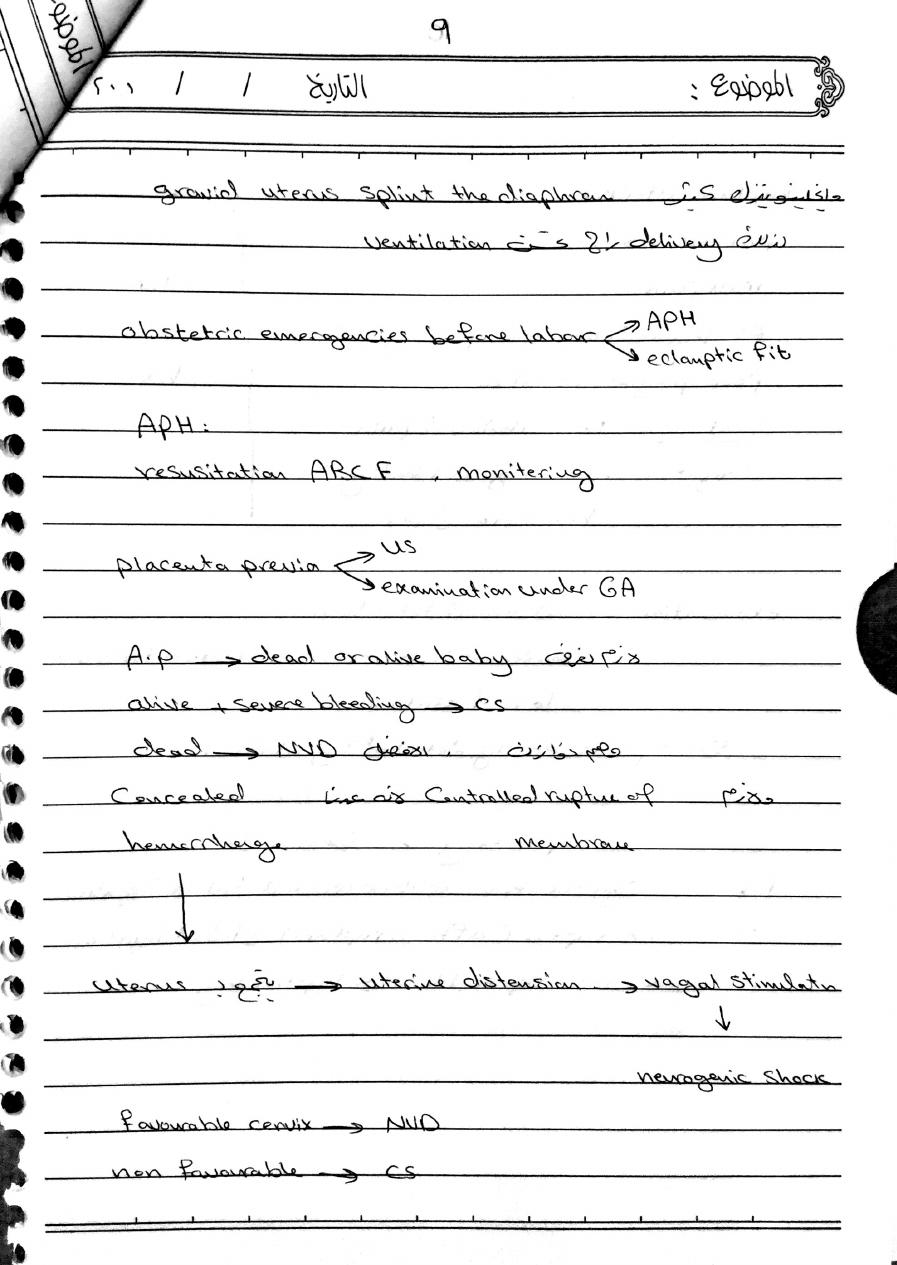 9
الموضوع
الموضوع : التاريخ / / ٢٠٠١
gravid uterus splint the diaphram كبير
ventilation delivery
obstetric emergencies before labor → APH
→ eclamptic fit
APH :
resusitation ABCF , monitering
placenta previa → US
→ examination under GA
A.P → dead or alive baby لازم نعرف
alive + severe bleeding → CS
dead → NVD الافضل
Concealed لانه عندنا Controlled rupture of ولازم
hemorrhage membrane
↓
uterus → uterine distension → vagal stimulatn
↓
neurogenic shock
favourable cervix → NVD
non favourable → CS